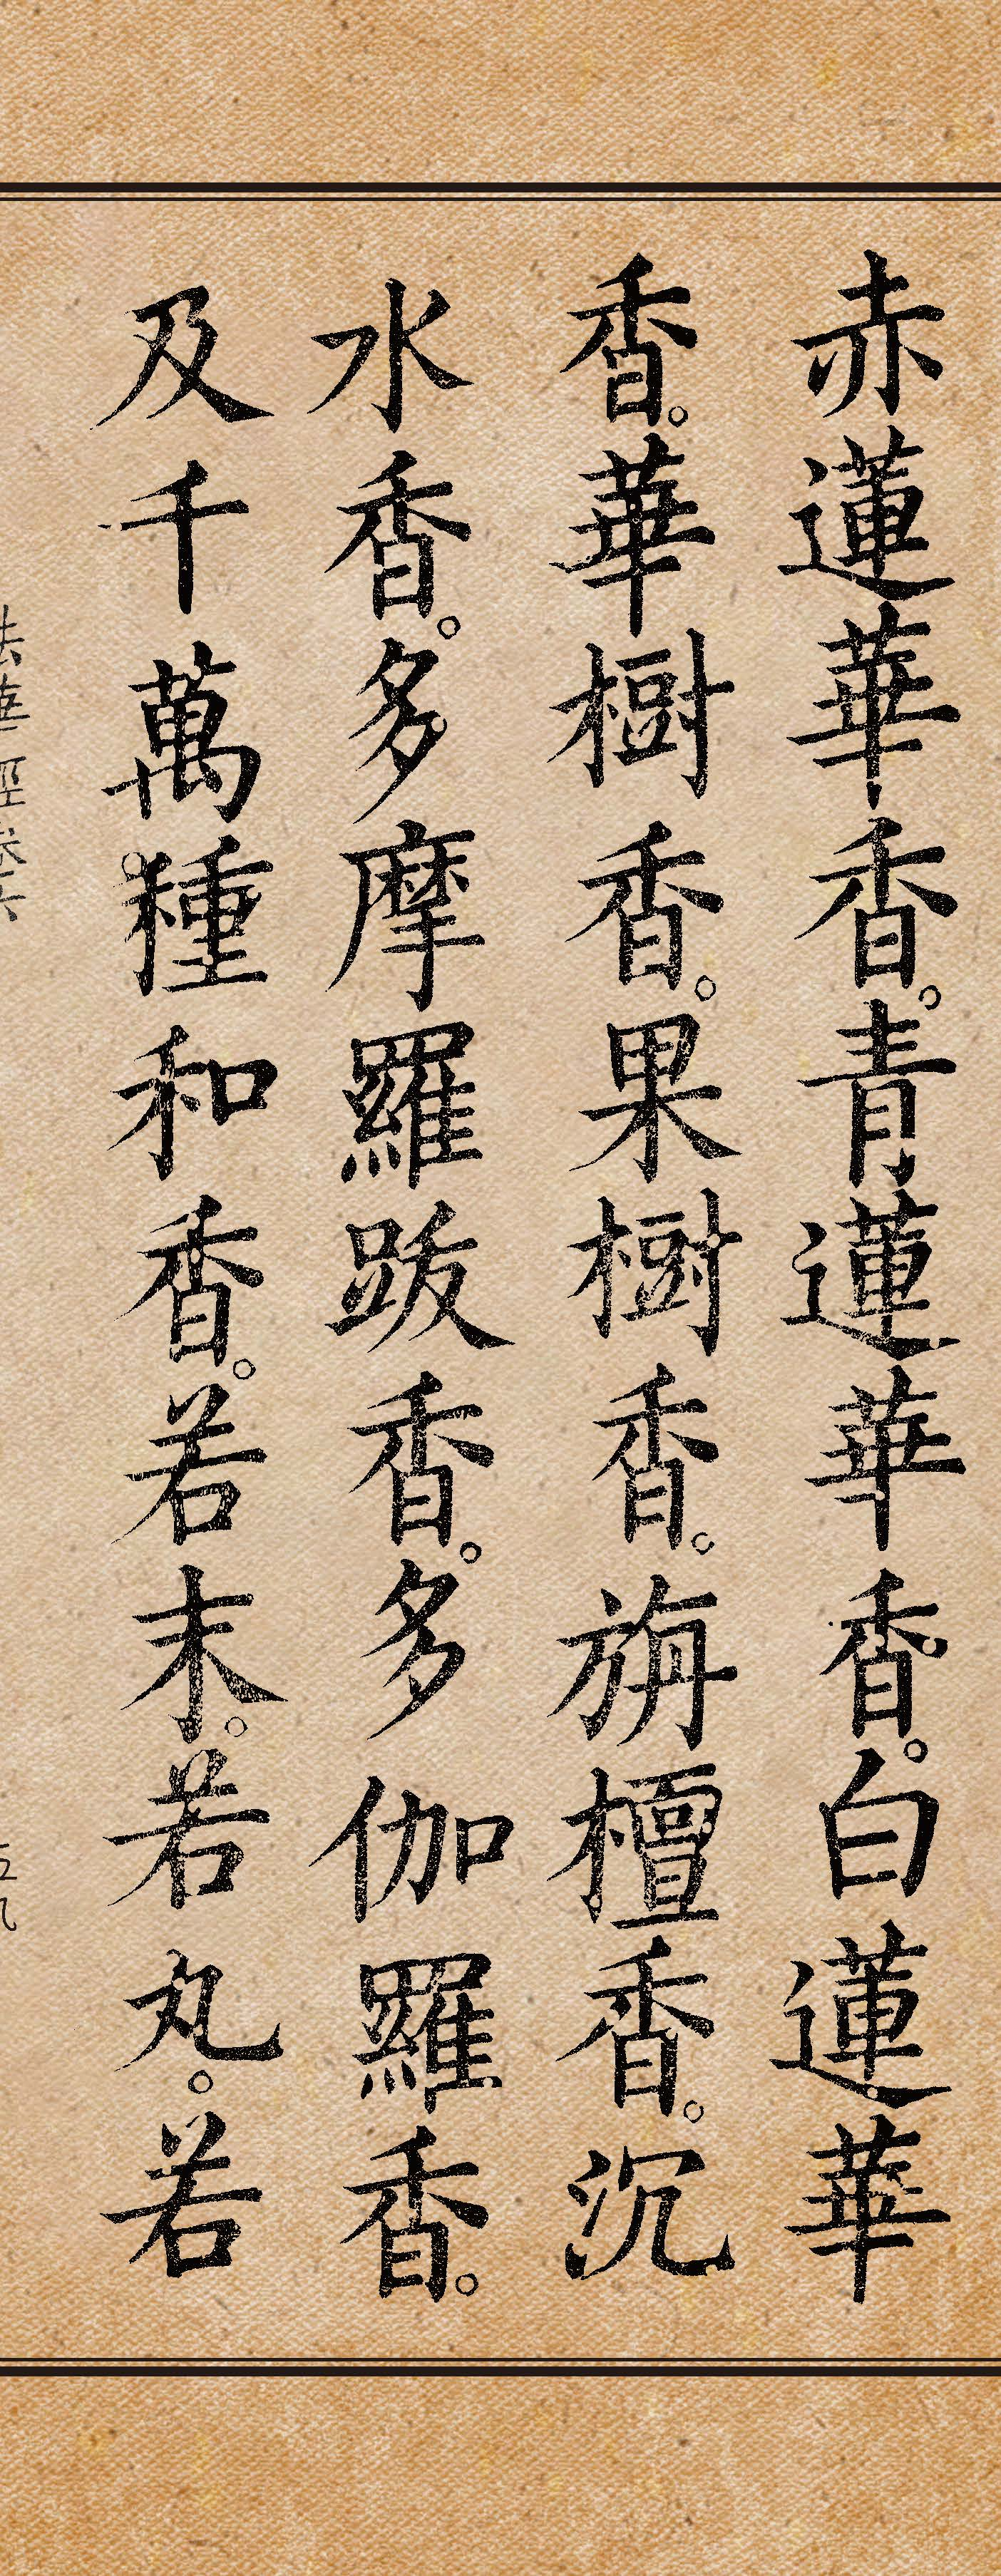 赤蓮華香。青蓮華香。白蓮華
香。華樹香。果樹香。旃檀香。沉
水香。多摩羅跋香。多伽羅香。
及千萬種和香。若末。若丸。若
法華經卷六